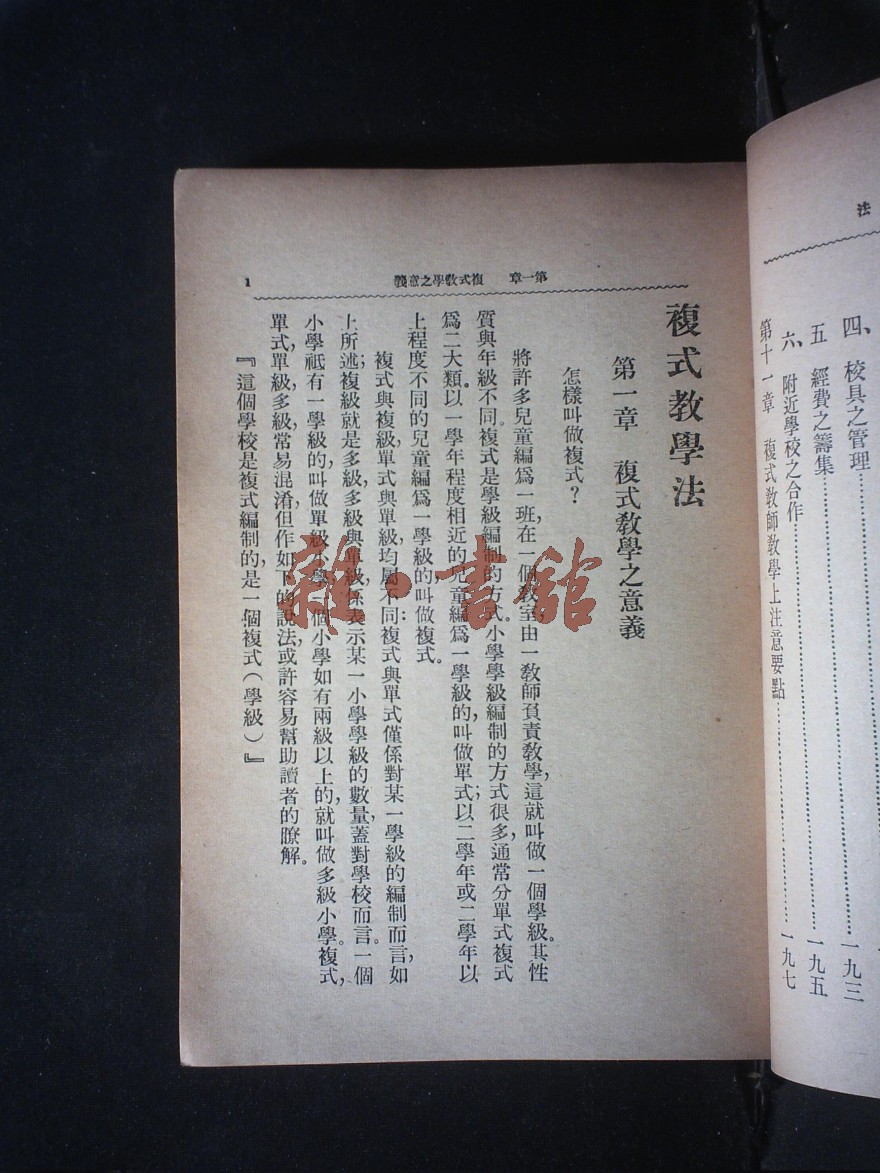 法
四、校具之管理……一九三
五　經費之籌集……一九五
六、附近學校之合作
第十一章　複式教師教學上注意要點……一九七
第一章　複式教學之意義
1
複式教學法
第一章　複式教學之意義
怎樣叫做複式？
將許多兒童編爲一班，在一個教室，由一教師負責教學，這就叫做一個學級。其性
質與年級不同。複式是學級編制的方式。小學學級編制的方式很多，通常分單式複式
爲二大類。以一學年程度相近的兒童編爲一學級的，叫做單式；以二學年或二學年以
上程度不同的兒童編爲一學級的叫做複式。
複式與複級，單式與單級，均屬不同：複式與單式僅係對某一學級的編制而言，如
上所述；複級就是多級，多級與單級，係表示某一小學學級的數量，蓋對學校而言。一個
小學祗有一學級的，叫做單級小學；一個小學如有兩級以上的，就叫做多級小學。複式，
單式，單級，多級，常易混淆，但作如下的說法，或許容易幫助讀者的瞭解。
『這個學校是複式編制的，是一個複式（學級）』
雜·書館